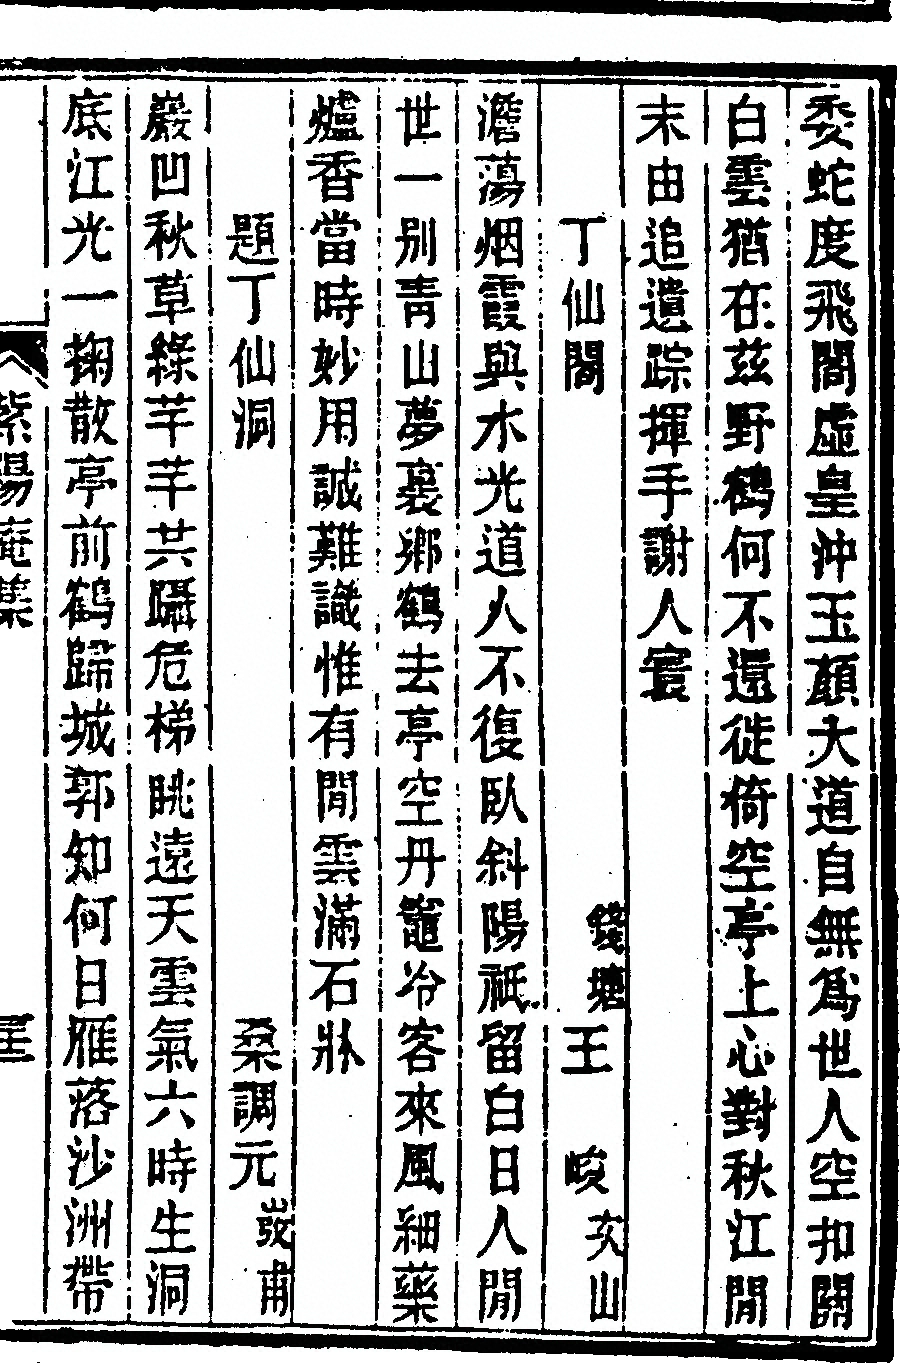 委蛇度飛閣虛皇沖玉顏大道自無爲世人空扣關
白雲猶在茲野鶴何不還徙倚空亭上心對秋江閒
末由追遺踪揮手謝人寰
丁仙閣 錢塘王 峻艮山
澹蕩烟霞與水光道人不復臥斜陽祗留白日人閒
世一別靑山夢裏鄉鶴去亭空丹竈冷客來風細藥
爐香當時妙用誠難識惟有閒雲滿石牀
題丁仙洞 桑調元弢甫
巖凹秋草綠芊芊共躡危梯眺遠天雲氣六時生洞
底江光一掬散亭前鶴歸城郭知何日雁落沙洲帶
紫陽庵集